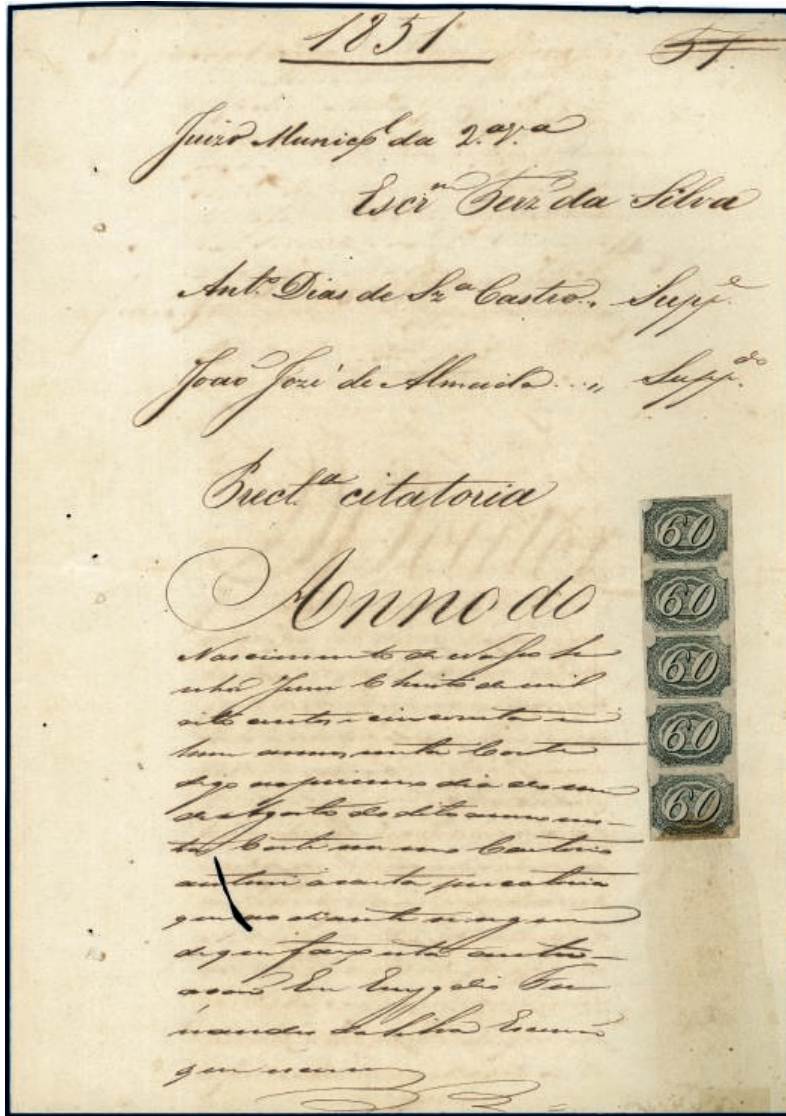 1851
51
Juizo Municpl da 2.ª v.ª
Escrm Ferz da Silva
Ant.º Dias de Sz.ª Castro ,, Supp.e
João Jozé de Almeida ... ,, Supp.do
Prect.ª citatoria
Anno do
Nascimento de Nosso Se
nhor Jesus Christo de mil
oito centos e cincoenta e
hum annos, nesta Corte
digo no primeiro dia do mez
de Agosto do dito anno nes-
ta Corte no meo Cartorio
autuei a carta precatoria
que ao diante se segue
de que faço esta autu-
ação Eu Emygdio Fer
nandes da Silva Escrivão
que escrevi
60
60
60
60
60